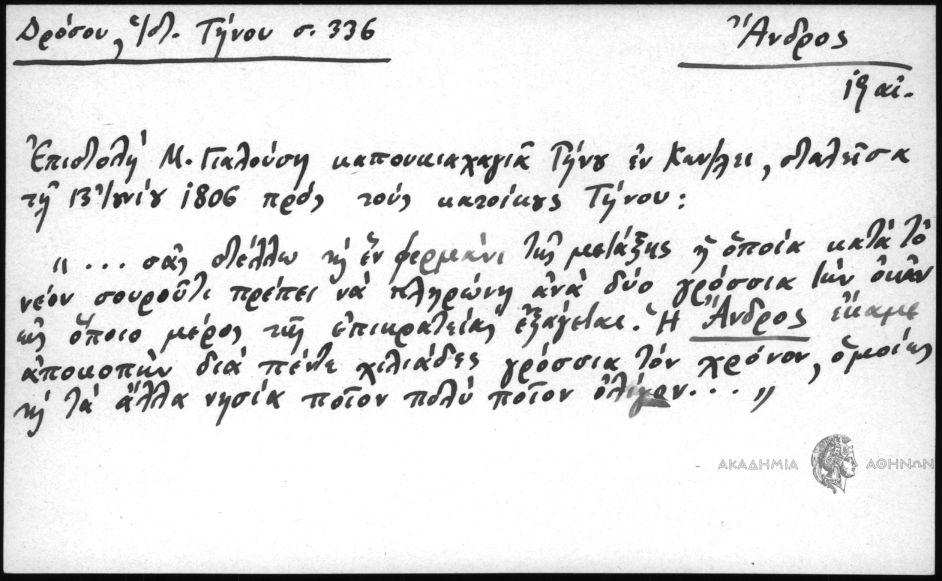 Δρόσου, Ἱστ. Τήνου σ. 336
Ἄνδρος
19 αἰ.
Ἐπιστολὴ Μ. Γιαλούση καπουκιαχαγιᾶ Τήνου ἐν Κων/λει, σταλεῖσα
τῇ 13 Ἰουνίου 1806 πρὸς τοὺς κατοίκους Τήνου:
"... σᾶς στέλλω κὴ ἓν φερμάνι τῆς μετάξης ἡ ὁποία κατὰ τὸ
νέον σουροῦτι πρέπει νὰ πληρώνῃ ἀνὰ δύο γρόσσια τὴν ὀκᾶν
εἰς ὅποιο μέρος τῆς ἐπικρατείας ἐξάγεται. Ἡ Ἄνδρος ἔκαμε
ἀποκοπὴν διὰ πέντε χιλιάδες γρόσσια τὸν χρόνον, ὁμοίως
κὴ τὰ ἄλλα νησία ποῖον πολὺ ποῖον ὀλίγον... "
ΑΚΑΔΗΜΙΑ ΑΘΗΝΩΝ